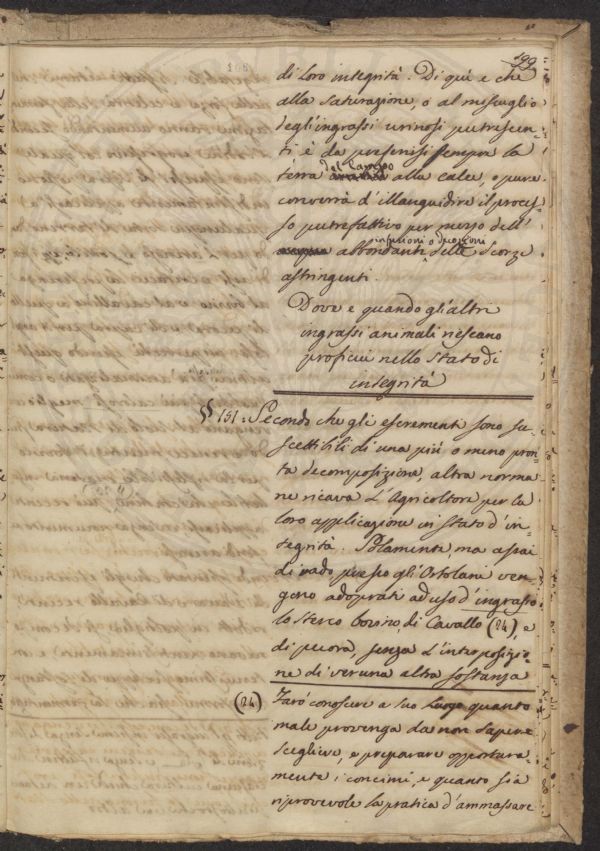 199
di loro integrità. Di quì è che
alla saturazione, o al miscuglio
degl'ingrassi urinosi putrescen-
ti è da preferirsi sempre la
del Campo
terra alla calce, o pure
converrà d'illanguidire il proces-
so putrefattivo per mezzo dell'
infusioni o decozioni
acqua abbondanti delle Scorze
astringenti.
Dove e quando gl'altri
ingrassi animali riescano
proficui nello stato di
integrità
§§ 151. Secondo che gli escrementi sono su-
scettibili di una più o meno pron-
ta decomposizione, altra norma
ne ricava l'Agricoltore per la
loro applicazione in stato d'in-
tegrità. Solamente, ma assai
di rado presso gli Ortolani ven-
gono adoprati ad uso d'ingrasso
lo sterco bovino, di Cavallo (24), e
di pecora, senza l'interposizio-
ne di veruna altra sostanza
(24) Farò conoscere a suo luogo quanto
male provenga da non sapere
scegliere, e preparare opportuna-
mente i concimi, e quanto sia
riprovevole la pratica d'ammassare